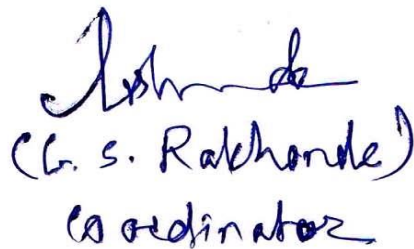 (G. S. Rakhonde)
Coordinator